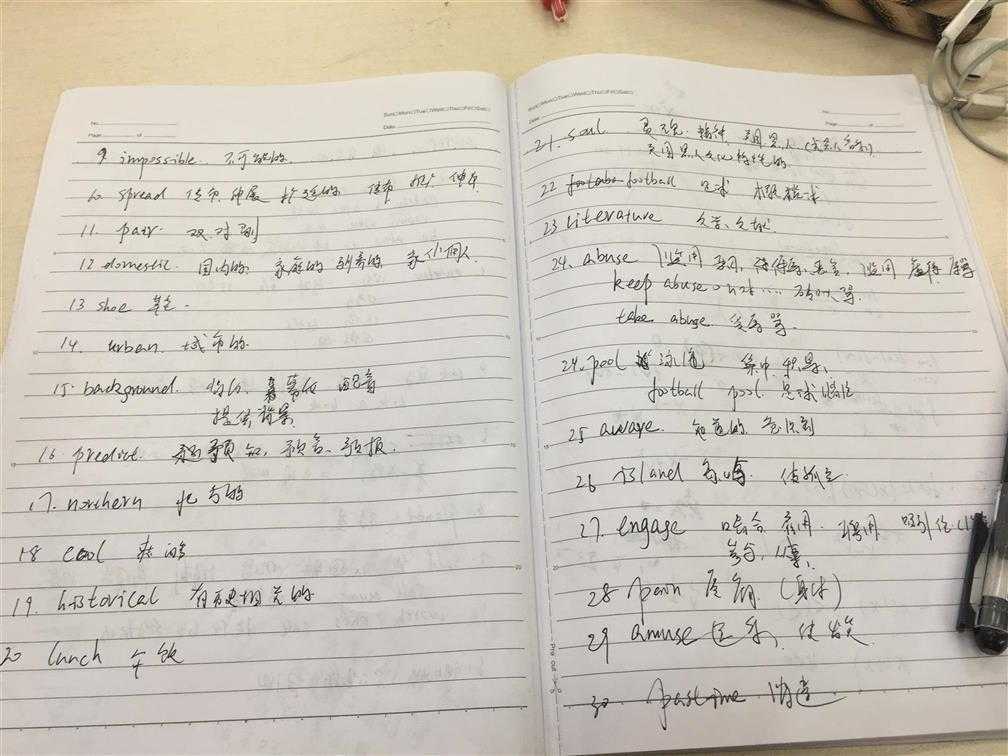 No.
Page of
Sun○Mon○Tue○Wed○Thu○Fri○Sat○
Date:
9. impossible. 不可能的.
10 spread 传布 伸展 使
11. pair. 双. 对 副
12 domestic. 国内的 家庭的 驯养的
13 shoe 鞋.
14. urban. 城市的
15. background. 配音
提供背景
16 predict. 预知, 预言, 预报.
17. northern 北方的
18 cool
19. historical 有历史相关的
20 lunch 午饭
Sun○Mon○Tue○Wed○Thu○Fri○Sat○
Date:
No.
Page of
21. soul 灵魂. 精神. 美国黑人
美国黑人文化特性的
22 football 足球 橄榄球
23 literature 文学. 文献.
24. abuse 滥用 滥用 虐待 辱骂
keep abuse
take abuse 受辱骂.
24. pool 泳池 集中
football pool. 足球赌注
25 aware. 知道的. 意识到
26 island 岛屿. 使孤立
27. engage 吻合 雇用. 聘用 吸引住
参与, 从事,
28 pain 疼痛 (身体)
29 amuse 使发笑
30 pastime 消遣